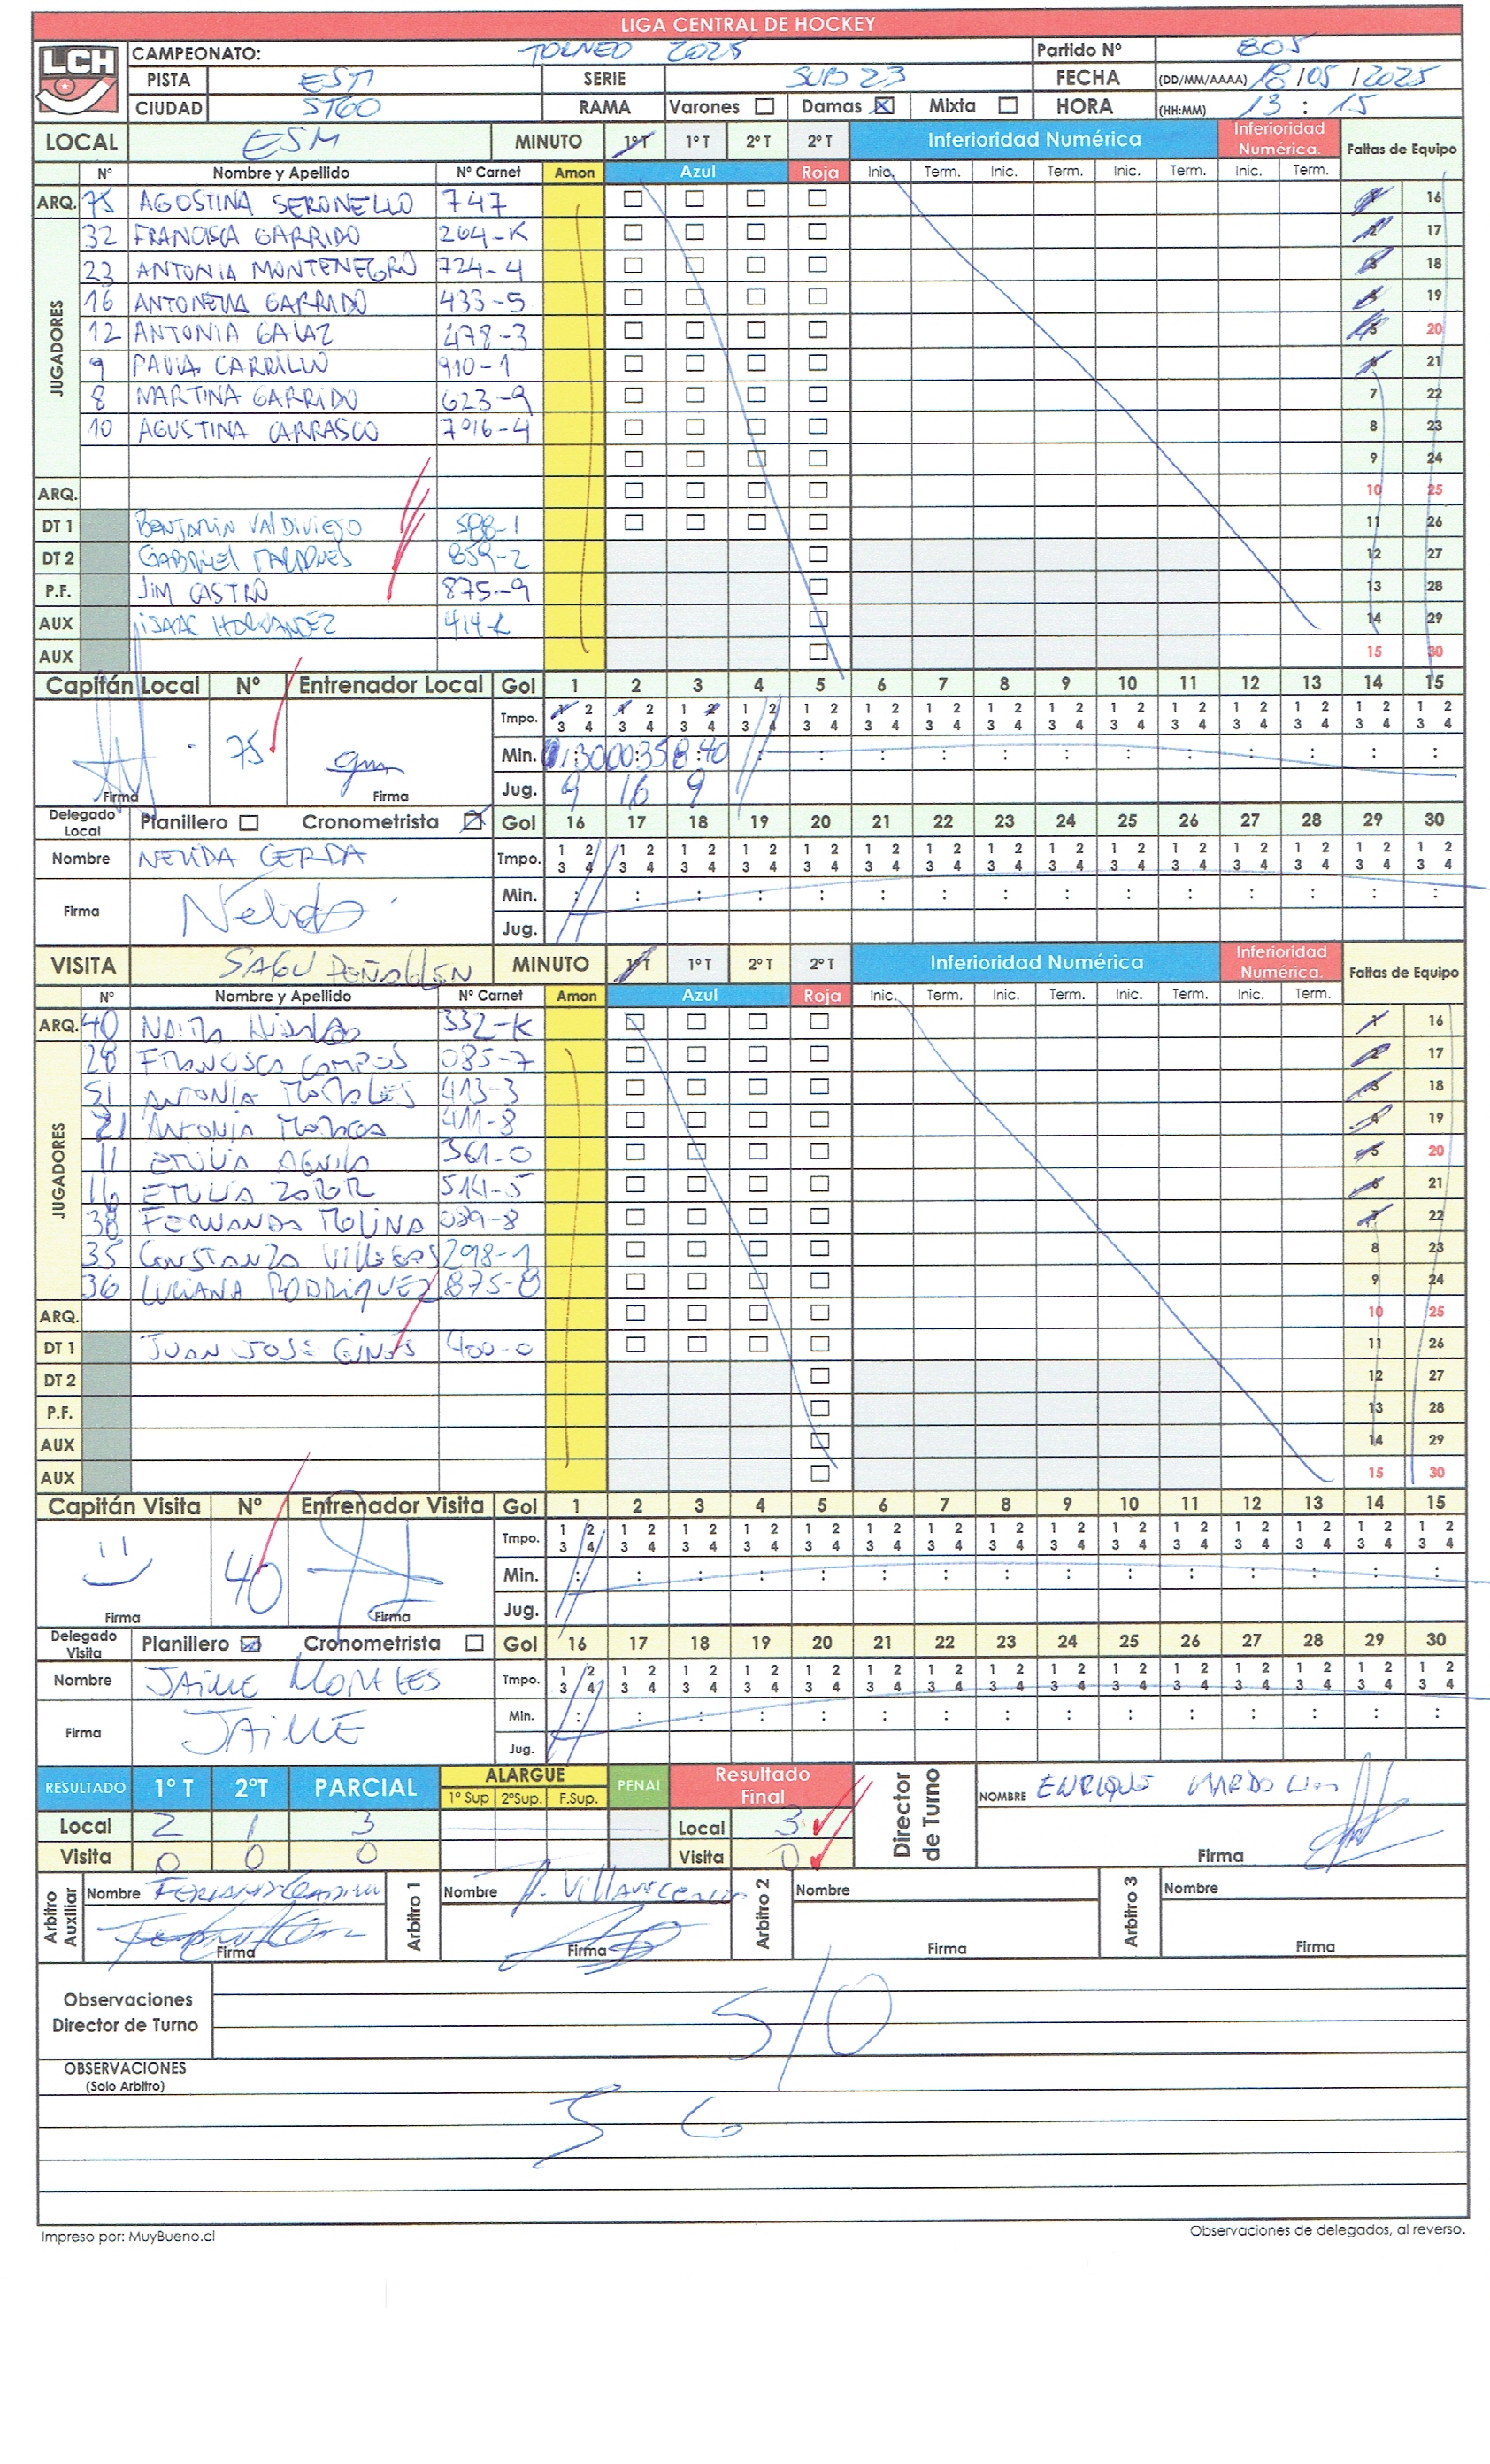 LIGA CENTRAL DE HOCKEY
LCH CAMPEONATO: TORNEO 2025 Partido Nº 805
PISTA ESM SERIE SUB 23 FECHA (DD/MM/AAAA) 18/05/2025
CIUDAD STGO RAMA Varones Damas Mixta HORA (HH:MM) 13:15
LOCAL ESM MINUTO 1ºT 1ºT 2ºT 2ºT Inferioridad Numérica Inferioridad Numérica. Faltas de Equipo
Nº Nombre y Apellido Nº Carnet Amon Azul Roja Inic. Term. Inic. Term. Inic. Term. Inic. Term.
ARQ. 75 AGOSTINA SERONELLO 747 1 16
JUGADORES
32 FRANCISCA GARRIDO 264-K 2 17
23 ANTONIA MONTENEGRO 724-4 3 18
16 ANTONELLA GARRIDO 433-5 4 19
12 ANTONIA GALAZ 478-3 5 20
9 PAULA CARRILLO 910-1 6 21
8 MARTINA GARRIDO 623-9 7 22
10 AGUSTINA CARRASCO 7016-4 8 23
9 24
ARQ. 10 25
DT 1 BENJAMIN VALDIVIESO 598-1 11 26
DT 2 GABRIEL 859-2 12 27
P.F. JIM CASTRO 875-9 13 28
AUX ISAAC HERNANDEZ 414-K 14 29
AUX 15 30
Capitán Local Nº Entrenador Local Gol 1 2 3 4 5 6 7 8 9 10 11 12 13 14 15
Tmpo. 1 2 3 4
75 Min. 13:00 0:35 8:40
Firma Firma Jug. 9 16 9
Delegado Local Planillero Cronometrista Gol 16 17 18 19 20 21 22 23 24 25 26 27 28 29 30
Nombre NELIDA CERDA Tmpo. 1 2 3 4
Firma Nelida Min.
Jug.
VISITA SAGU PEÑALOLEN MINUTO 1ºT 1ºT 2ºT 2ºT Inferioridad Numérica Inferioridad Numérica. Faltas de Equipo
Nº Nombre y Apellido Nº Carnet Amon Azul Roja Inic. Term. Inic. Term. Inic. Term. Inic. Term.
ARQ. 40 332-K 1 16
JUGADORES
28 FRANCISCA CAMPOS 085-7 2 17
51 ANTONIA MORALES 413-3 3 18
21 ANTONIA 411-8 4 19
11 EMILIA AGUILA 361-0 5 20
16 EMILIA 514-5 6 21
38 FERNANDA MOLINA 089-8 7 22
35 CONSTANZA VILLEGAS 298-1 8 23
36 LUCIANA RODRIQUEZ 875-8 9 24
ARQ. 10 25
DT 1 JUAN JOSE GINES 400-0 11 26
DT 2 12 27
P.F. 13 28
AUX 14 29
AUX 15 30
Capitán Visita Nº Entrenador Visita Gol 1 2 3 4 5 6 7 8 9 10 11 12 13 14 15
Tmpo. 1 2 3 4
40 Min.
Firma Firma Jug.
Delegado Visita Planillero Cronometrista Gol 16 17 18 19 20 21 22 23 24 25 26 27 28 29 30
Nombre JAIME MORALES Tmpo. 1 2 3 4
Firma JAIME Min.
Jug.
RESULTADO 1º T 2ºT PARCIAL ALARGUE 1º Sup 2ºSup. F.Sup. PENAL Resultado Final Director de Turno NOMBRE ENRIQUE
Local 2 1 3 Local 3
Visita 0 0 0 Visita 0 Firma
Arbitro Auxiliar Nombre Arbitro 1 Nombre Villavicencio Arbitro 2 Nombre Arbitro 3 Nombre
Firma Firma Firma Firma
Observaciones Director de Turno S/O
OBSERVACIONES
(Solo Arbitro)
Impreso por: MuyBueno.cl Observaciones de delegados, al reverso.